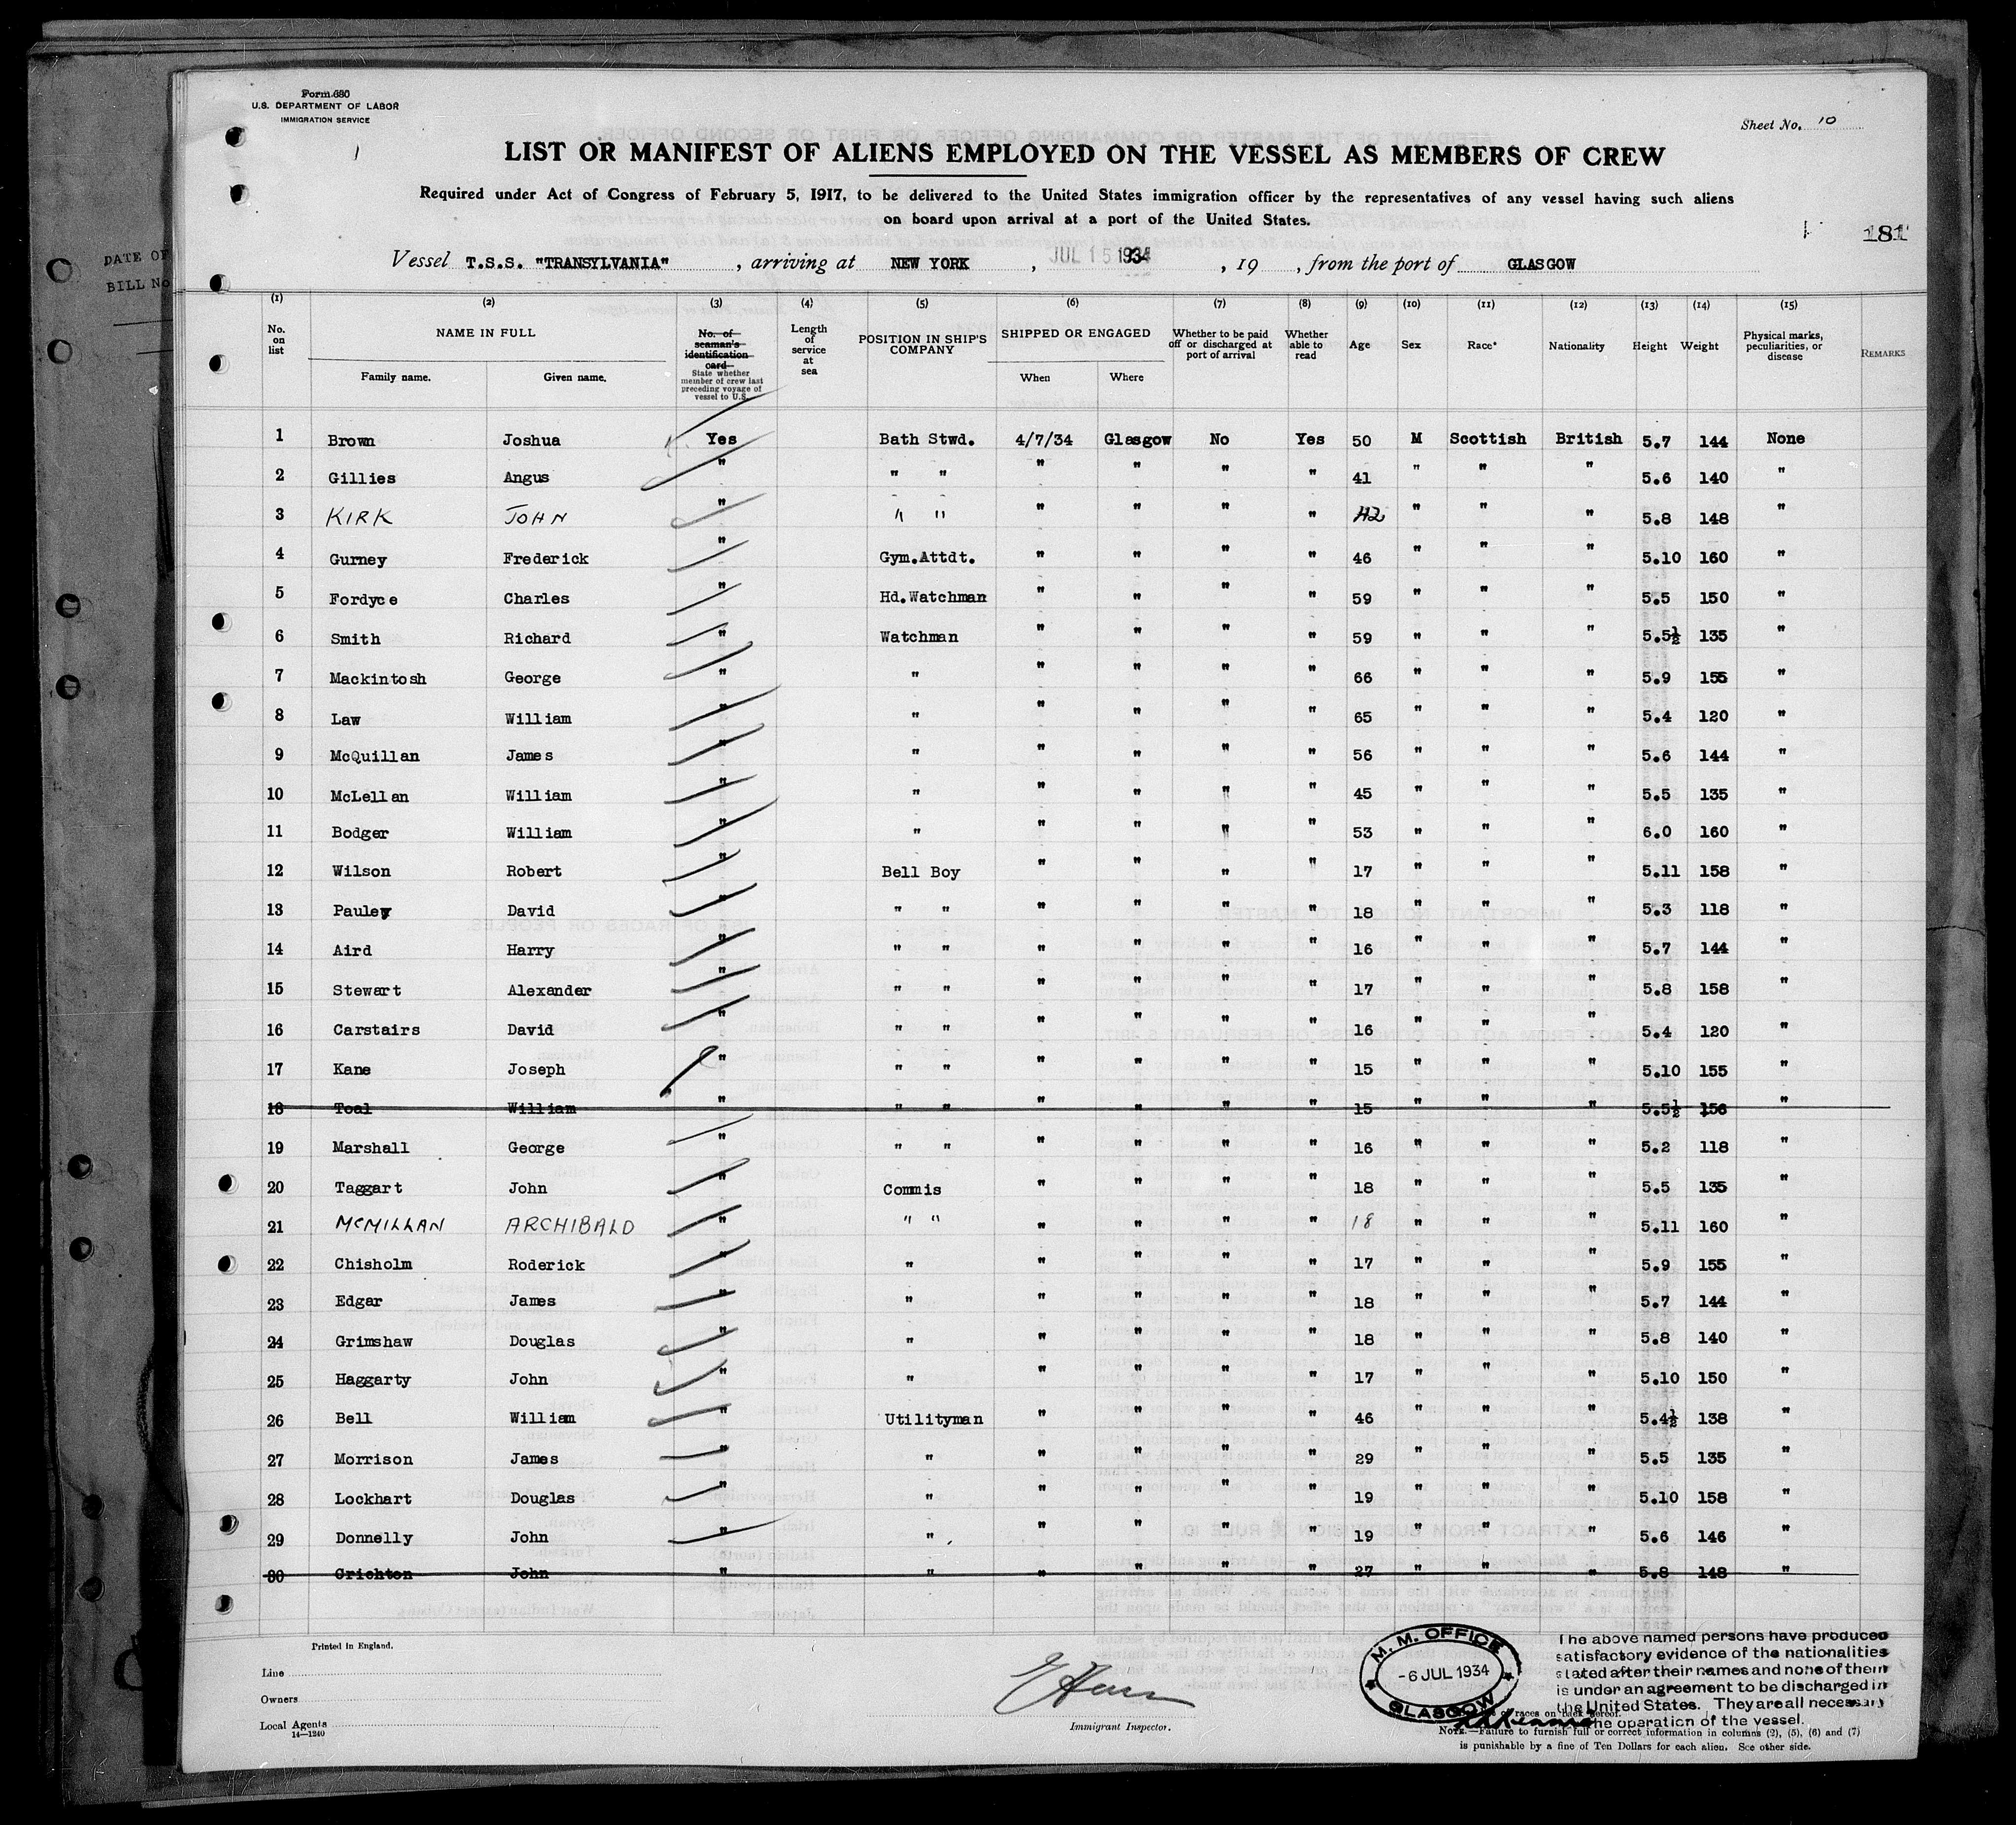 Form 680
U.S. DEPARTMENT OF LABOR
IMMIGRATION SERVICE
Sheet No. 10
1
LIST OR MANIFEST OF ALIENS EMPLOYED ON THE VESSEL AS MEMBERS OF CREW
Required under Act of Congress of February 5, 1917, to be delivered to the United States immigration officer by the representatives of any vessel having such aliens
on board upon arrival at a port of the United States.
181
DATE OF
BILL No
Vessel T.S.S. "TRANSYLVANIA", arriving at NEW YORK, JUL 15 1934, 19 , from the port of GLASGOW
(1) (2) (3) (4) (5) (6) (7) (8) (9) (10) (11) (12) (13) (14) (15)
No. on list NAME IN FULL Family name. Given name. No. of seaman's identification card State whether member of crew last preceding voyage of vessel to U.S. Length of service at sea POSITION IN SHIP'S COMPANY SHIPPED OR ENGAGED When Where Whether to be paid off or discharged at port of arrival Whether able to read Age Sex Race* Nationality Height Weight Physical marks, peculiarities, or disease REMARKS
1 Brown Joshua Yes Bath Stwd. 4/7/34 Glasgow No Yes 50 M Scottish British 5.7 144 None
2 Gillies Angus " " " " " " " 41 " " " 5.6 140 "
3 KIRK JOHN " " " " " " " 42 " " " 5.8 148 "
4 Gurney Frederick " Gym.Attdt. " " " " 46 " " " 5.10 160 "
5 Fordyce Charles " Hd.Watchman " " " " 59 " " " 5.5 150 "
6 Smith Richard " Watchman " " " " 59 " " " 5.5½ 135 "
7 Mackintosh George " " " " " " 66 " " " 5.9 155 "
8 Law William " " " " " " 65 " " " 5.4 120 "
9 McQuillan James " " " " " " 56 " " " 5.6 144 "
10 McLellan William " " " " " " 45 " " " 5.5 135 "
11 Bodger William " " " " " " 53 " " " 6.0 160 "
12 Wilson Robert " Bell Boy " " " " 17 " " " 5.11 158 "
13 Pauley David " " " " " " " 18 " " " 5.3 118 "
14 Aird Harry " " " " " " " 16 " " " 5.7 144 "
15 Stewart Alexander " " " " " " " 17 " " " 5.8 158 "
16 Carstairs David " " " " " " " 16 " " " 5.4 120 "
17 Kane Joseph " " " " " " " 15 " " " 5.10 155 "
18 Toal William " " " " " " " 15 " " " 5.5½ 156 "
19 Marshall George " " " " " " " 16 " " " 5.2 118 "
20 Taggart John " Commis " " " " 18 " " " 5.5 135 "
21 McMILLAN ARCHIBALD " " " " " " " 18 " " " 5.11 160 "
22 Chisholm Roderick " " " " " " 17 " " " 5.9 155 "
23 Edgar James " " " " " " 18 " " " 5.7 144 "
24 Grimshaw Douglas " " " " " " 18 " " " 5.8 140 "
25 Haggarty John " " " " " " 17 " " " 5.10 150 "
26 Bell William " Utilityman " " " " 46 " " " 5.4½ 138 "
27 Morrison James " " " " " " 29 " " " 5.5 135 "
28 Lockhart Douglas " " " " " " 19 " " " 5.10 158 "
29 Donnelly John " " " " " " 19 " " " 5.6 146 "
30 Crichton John " " " " " " 27 " " " 5.8 148 "
Printed in England.
Line
Owners
Local Agents
14—1240
Immigrant Inspector.
M. M. OFFICE
-6 JUL 1934
GLASGOW
The above named persons have produced
satisfactory evidence of the nationalities
stated after their names and none of them
is under an agreement to be discharged in
the United States. They are all necessary
the operation of the vessel.
of races on back hereof.
NOTE.—Failure to furnish full or correct information in columns (2), (5), (6) and (7)
is punishable by a fine of Ten Dollars for each alien. See other side.